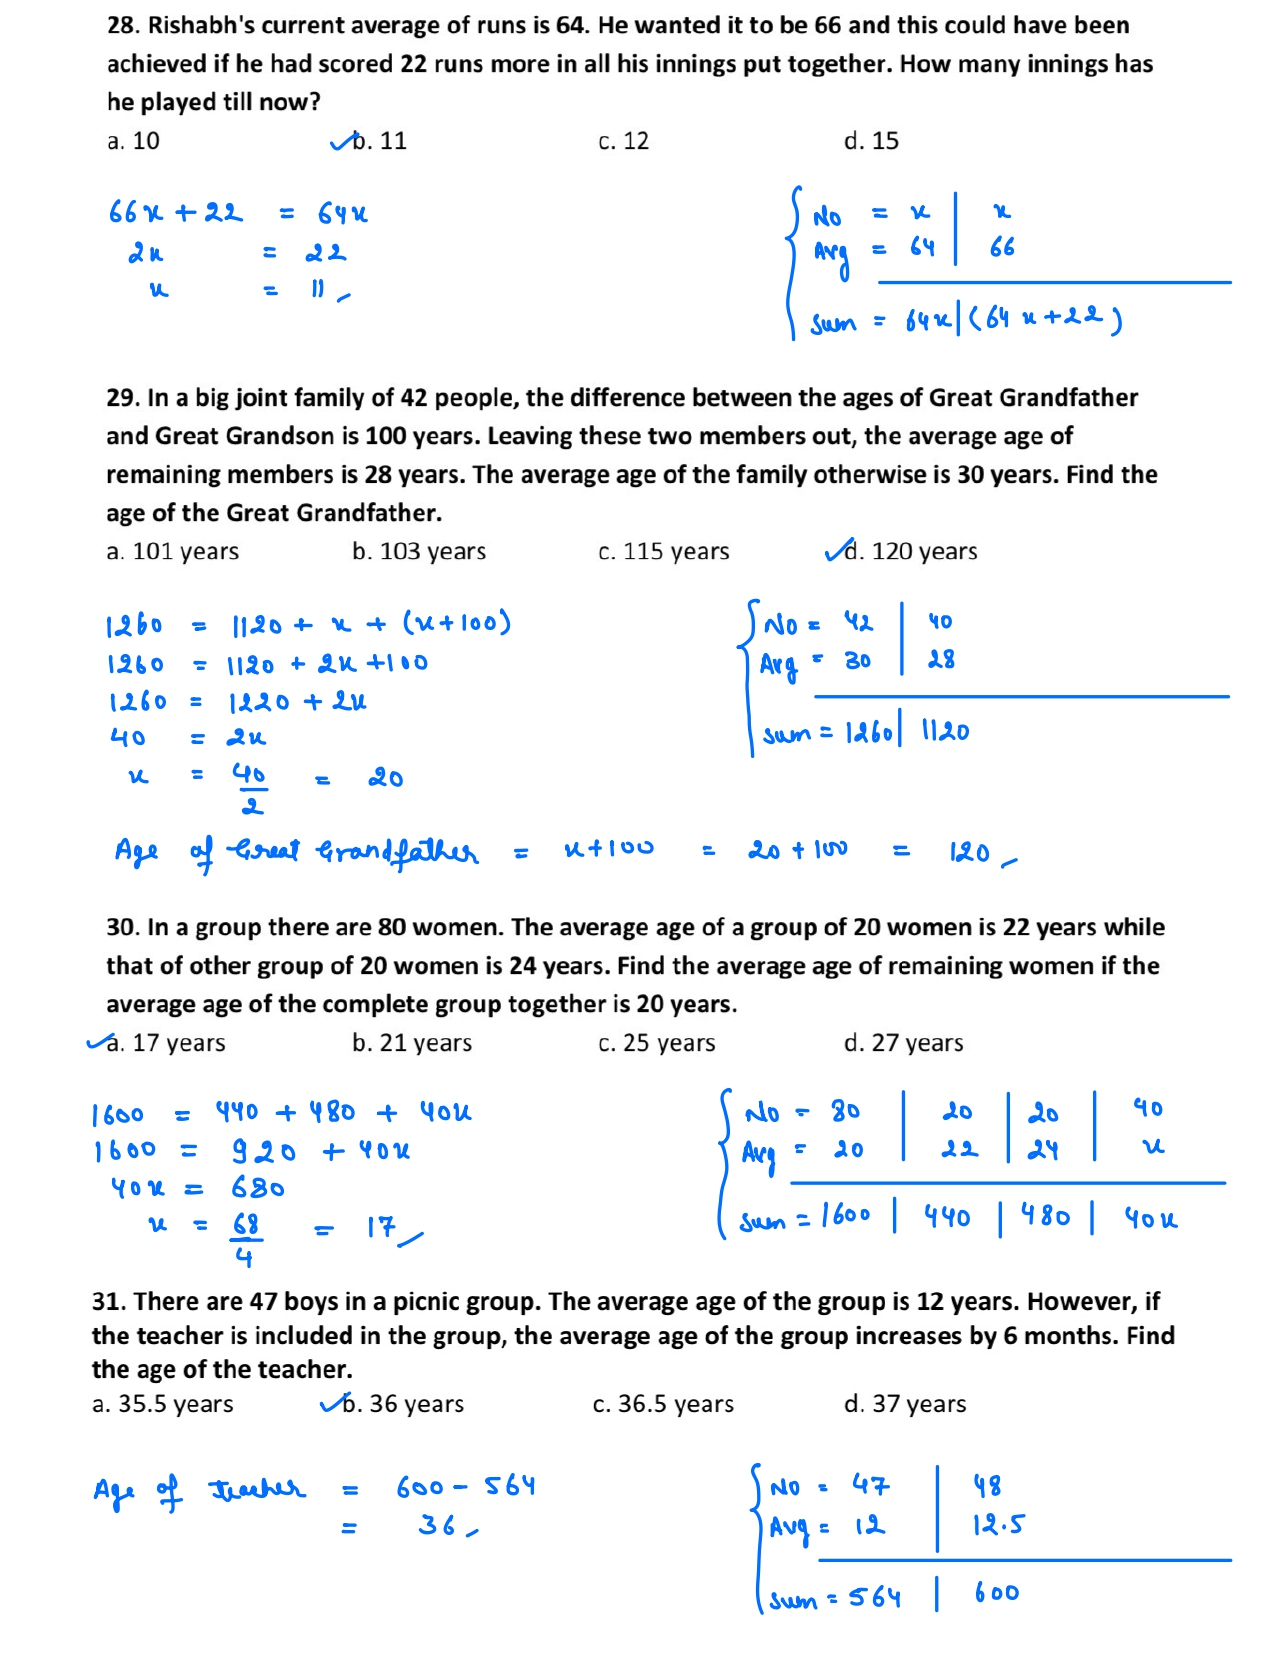 28. Rishabh's current average of runs is 64. He wanted it to be 66 and this could have been
achieved if he had scored 22 runs more in all his innings put together. How many innings has
he played till now?
a. 10 ✓b. 11 c. 12 d. 15
66x + 22 = 64x
2x = 22
x = 11
No = x | x
Avg = 64 | 66
Sum = 64x | (64x+22)
29. In a big joint family of 42 people, the difference between the ages of Great Grandfather
and Great Grandson is 100 years. Leaving these two members out, the average age of
remaining members is 28 years. The average age of the family otherwise is 30 years. Find the
age of the Great Grandfather.
a. 101 years b. 103 years c. 115 years ✓d. 120 years
1260 = 1120 + x + (x+100)
1260 = 1120 + 2x +100
1260 = 1220 + 2x
40 = 2x
x = 40/2 = 20
No = 42 | 40
Avg = 30 | 28
Sum = 1260 | 1120
Age of Great Grandfather = x+100 = 20 + 100 = 120
30. In a group there are 80 women. The average age of a group of 20 women is 22 years while
that of other group of 20 women is 24 years. Find the average age of remaining women if the
average age of the complete group together is 20 years.
✓a. 17 years b. 21 years c. 25 years d. 27 years
1600 = 440 + 480 + 40x
1600 = 920 + 40x
40x = 680
x = 68/4 = 17
No = 80 | 20 | 20 | 40
Avg = 20 | 22 | 24 | x
Sum = 1600 | 440 | 480 | 40x
31. There are 47 boys in a picnic group. The average age of the group is 12 years. However, if
the teacher is included in the group, the average age of the group increases by 6 months. Find
the age of the teacher.
a. 35.5 years ✓b. 36 years c. 36.5 years d. 37 years
Age of Teacher = 600 - 564
= 36
No = 47 | 48
Avg = 12 | 12.5
Sum = 564 | 600